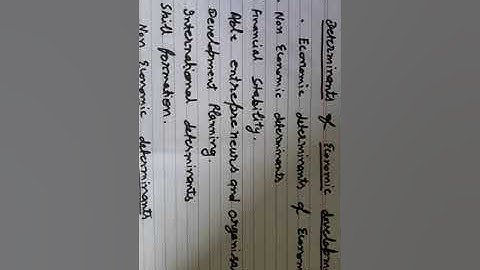 Determinants of Economic developm
• Economic determinants of Econom
• Non Economic determinants
Financial Stability.
Able entrepreneurs and organisa
Development Planning.
International determinants
Skill formation.
Non Economic determinants